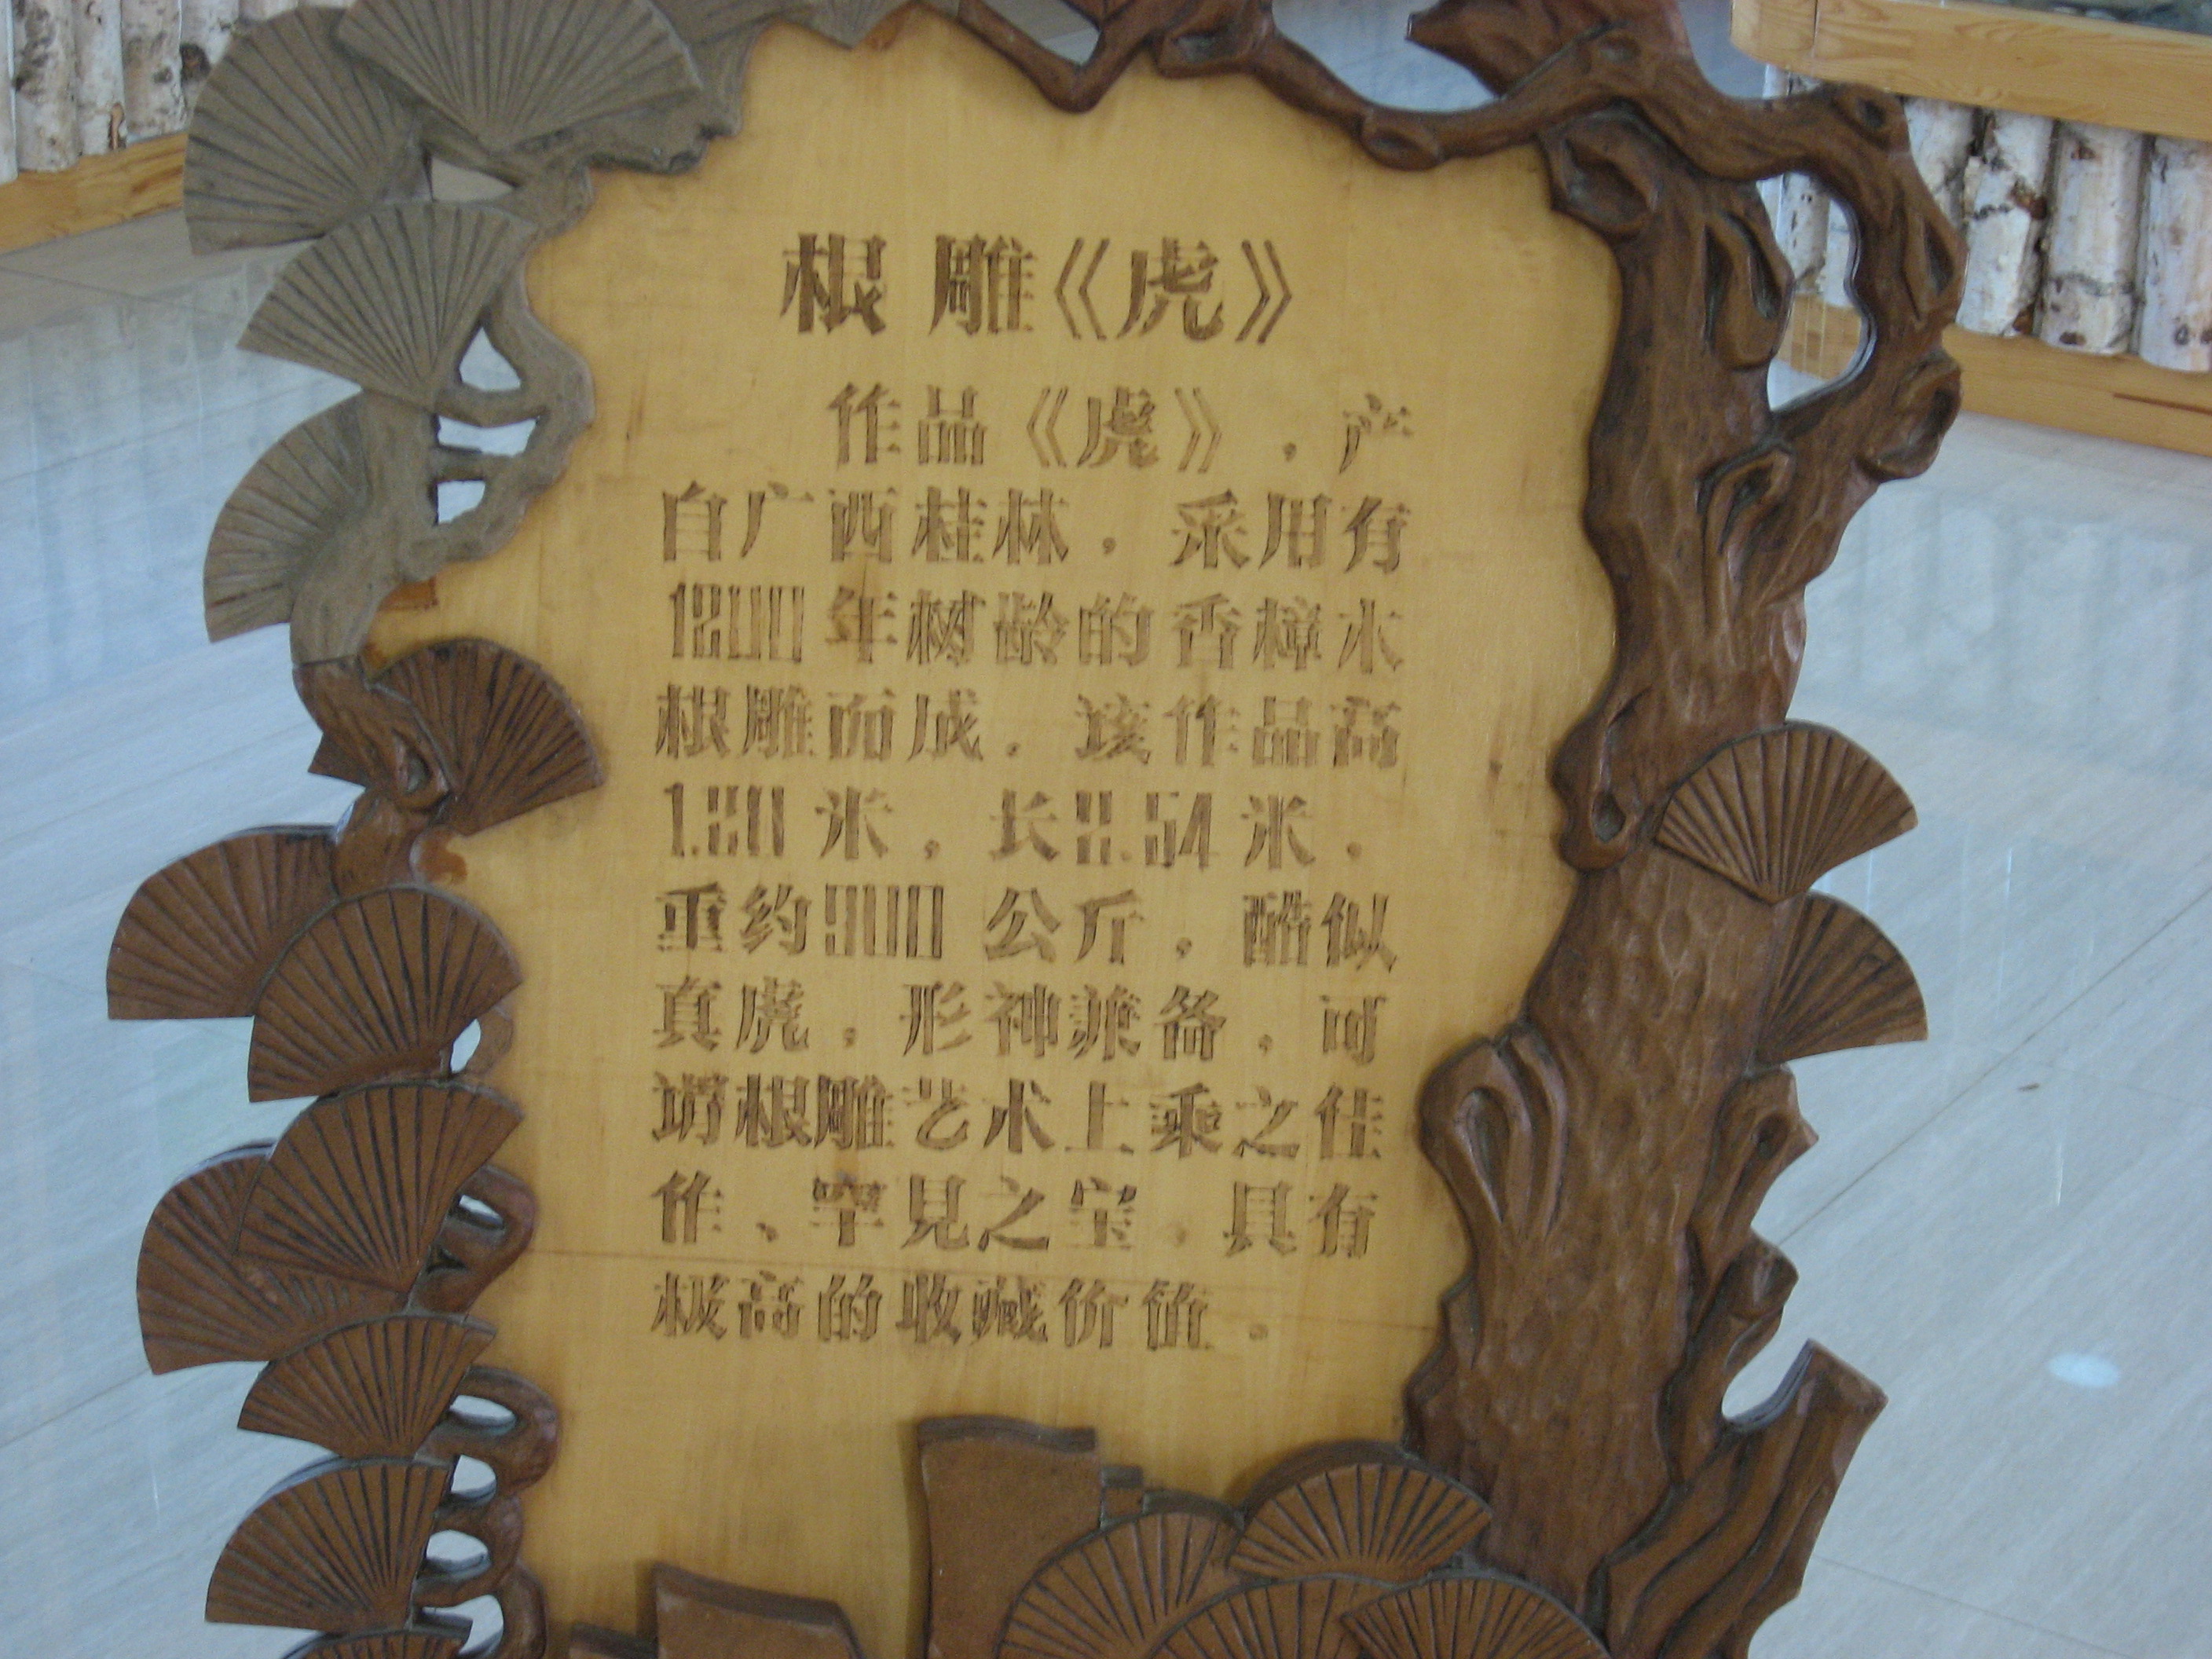 根雕《虎》
作品《虎》，产
自广西桂林，采用有
1200年树龄的香樟木
根雕而成。该作品高
米，长 米，
重约900公斤，酷似
真虎，形神兼备，可
谓根雕艺术上乘之佳
作、罕見之宝，具有
极高的收藏价值。